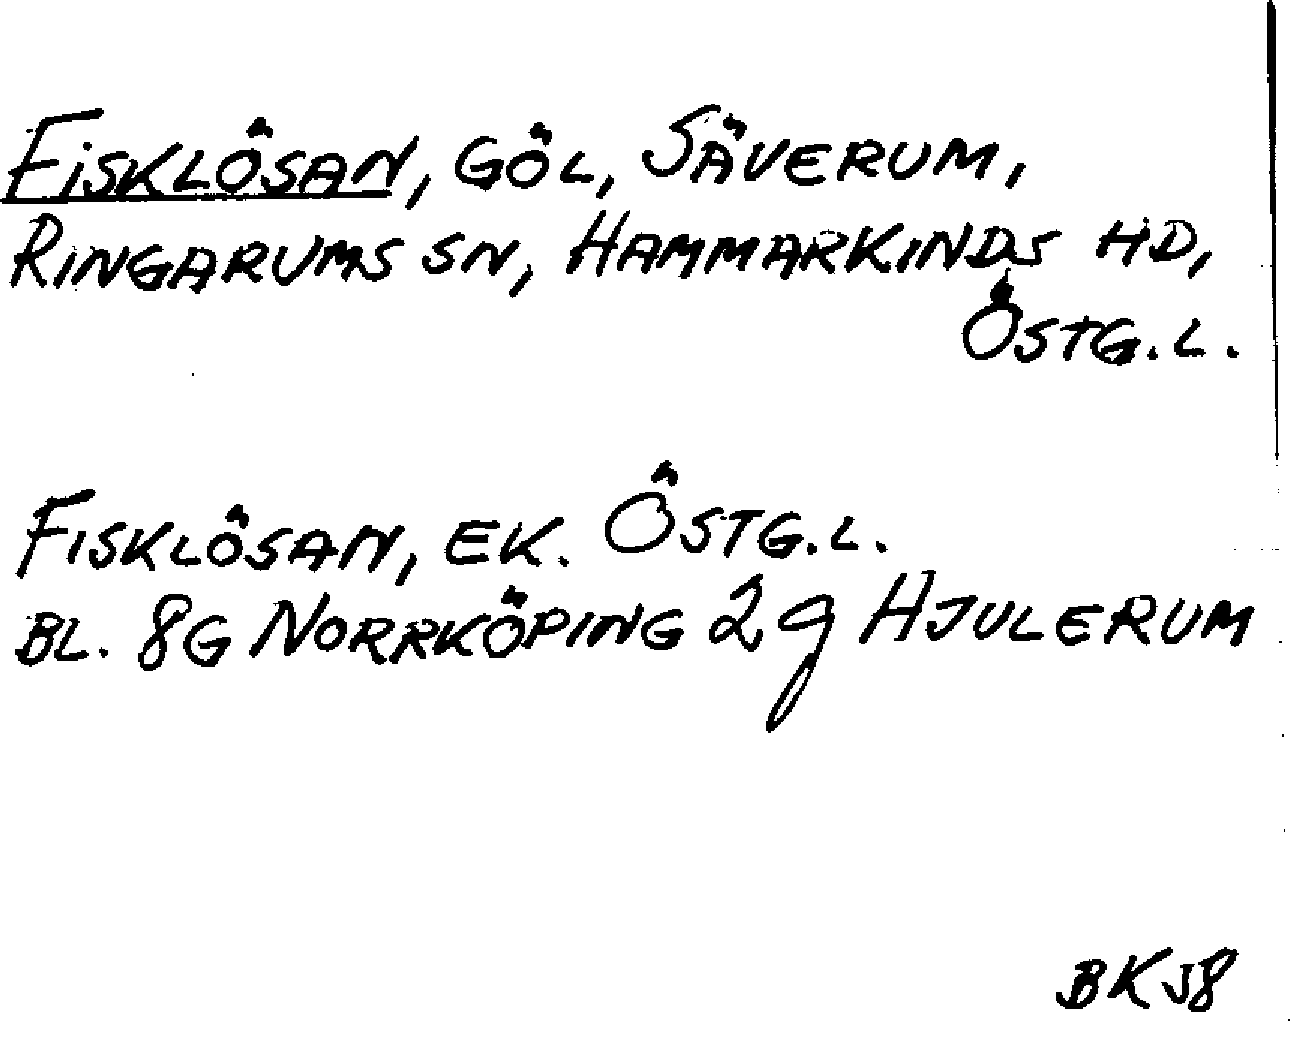 FISKLÖSAN, GÖL, SÄVERUM,
RINGARUMS SN, HAMMARKINDS HD,
ÖSTG.L.
FISKLÖSAN, EK. ÖSTG.L.
BL. 8G NORRKÖPING 2g HJULERUM
BKJ8